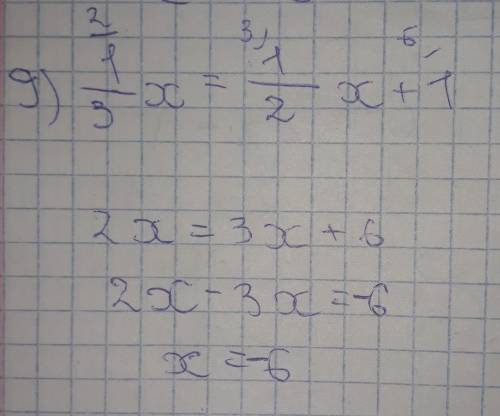 2 3, 6,
9) 1/3 x = 1/2 x + 1
2x = 3x + 6
2x - 3x = -6
x = -6